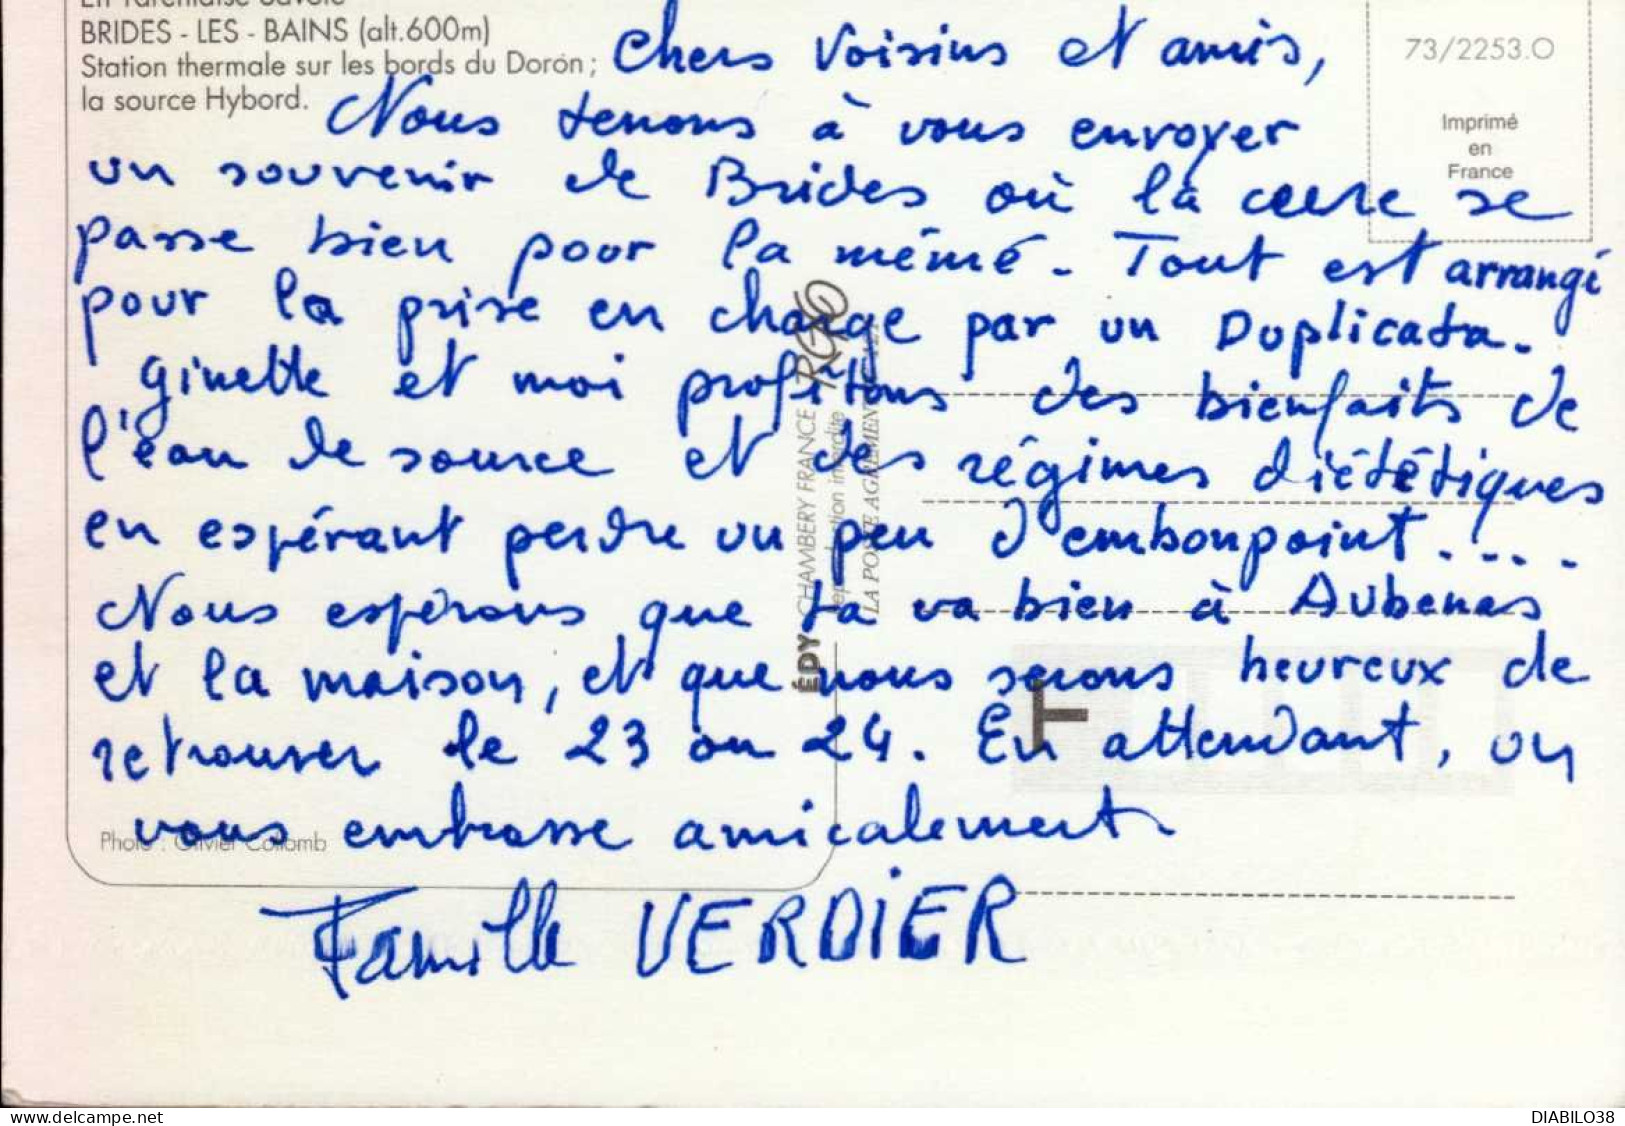 En Tarentaise Savoie
BRIDES - LES - BAINS (alt.600m)
Station thermale sur les bords du Doron ;
la source Hybord.
73/2253.O
Imprimé
en
France
Chers Voisins et amis,
Nous tenons à vous envoyer
un souvenir de Brides où la cure se
passe bien pour la mémé. Tout est arrangé
pour la prise en charge par un Duplicata.
Ginette et moi profitons des bienfaits de
l'eau de source et des régimes diététiques
en espérant perdre un peu d'embonpoint.....
Nous espérons que ta va bien à Aubenas
et la maison, et que nous serons heureux de
retrouver le 23 ou 24. En attendant, on
vous embrasse amicalement.
Famille VERDIER
Photo : Olivier Collomb
ÉDY CHAMBERY FRANCE
Reproduction interdite
LA POSTE AGREMENT
T
https://www.delcampe.net
DIABILO38